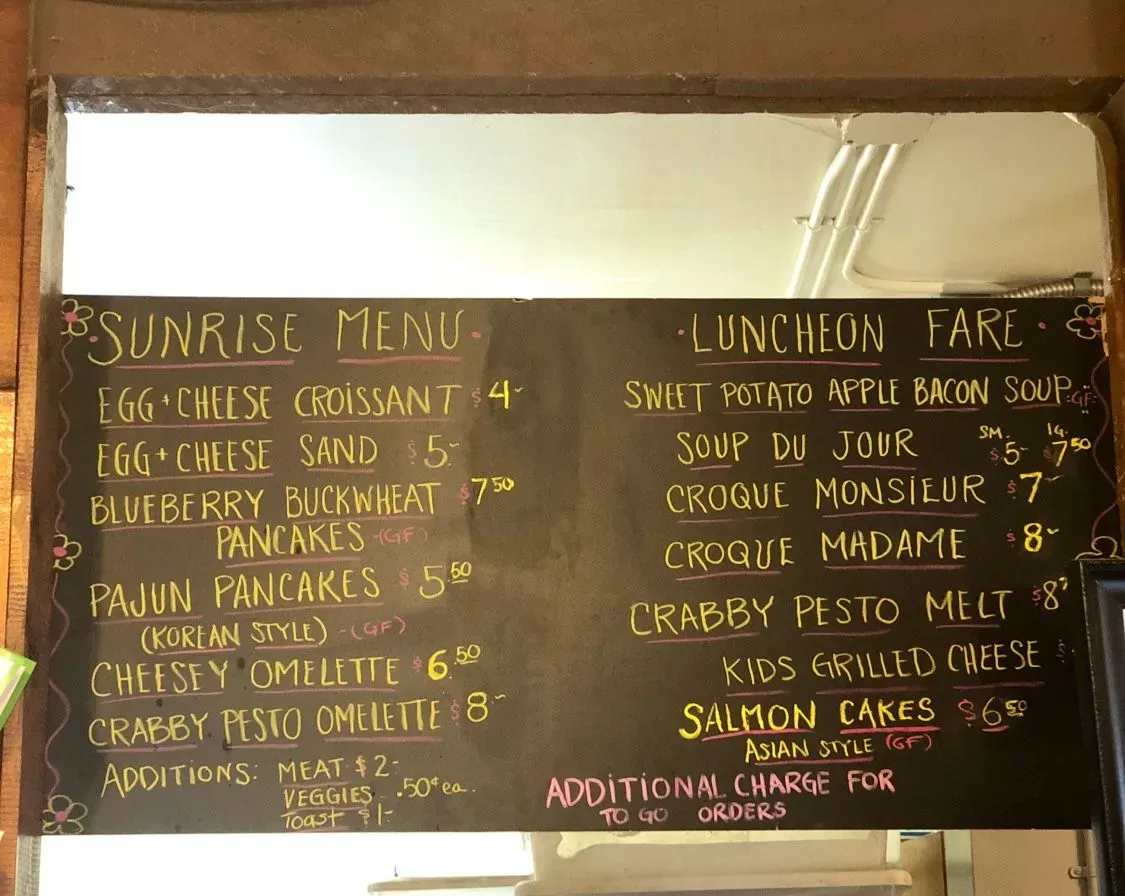 SUNRISE MENU
EGG + CHEESE CROISSANT $4-
EGG + CHEESE SAND $5-
BLUEBERRY BUCKWHEAT $7 50
PANCAKES -(GF)
PAJUN PANCAKES $5.50
(KOREAN STYLE) -(GF)
CHEESEY OMELETTE $6.50
CRABBY PESTO OMELETTE $8-
ADDITIONS: MEAT $2-
VEGGIES .50¢ ea.
Toast $1-
LUNCHEON FARE
SWEET POTATO APPLE BACON SOUP :GF:
SM. lG.
SOUP DU JOUR $5- $7 50
CROQUE MONSIEUR $7-
CROQUE MADAME $8-
CRABBY PESTO MELT $8
KIDS GRILLED CHEESE $
SALMON CAKES $6 50
ASIAN STYLE (GF)
ADDITIONAL CHARGE FOR
TO GO ORDERS